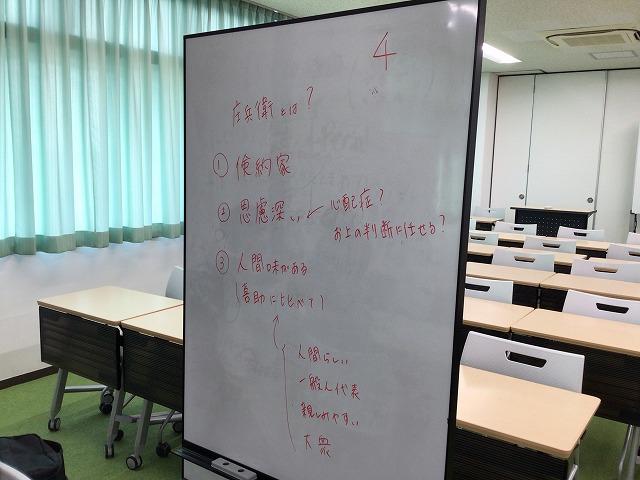 4
庄兵衛とは?
① 倹約家
② 思慮深い ← 心配症?
お上の判断に任せる?
③ 人間味がある
(喜助に比べて)
人間らしい
一般人代表
親しみやすい
大衆